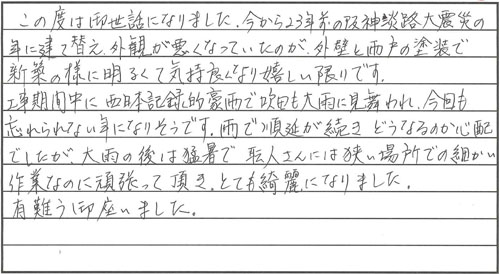 この度は御世話になりました。今から23年前の阪神淡路大震災の
年に建て替え、外観が悪くなっていたのが、外壁と雨戸の塗装で
新築の様に明るくて気持良くなり嬉しい限りです。
工事期間中に西日本記録的豪雨で吹田も大雨に見舞われ、今回も
忘れられない年になりそうです。雨で順延が続きどうなるのか心配
でしたが、大雨の後は猛暑で職人さんには狭い場所での細かい
作業なのに頑張って頂き、とても綺麗になりました。
有難う御座いました。